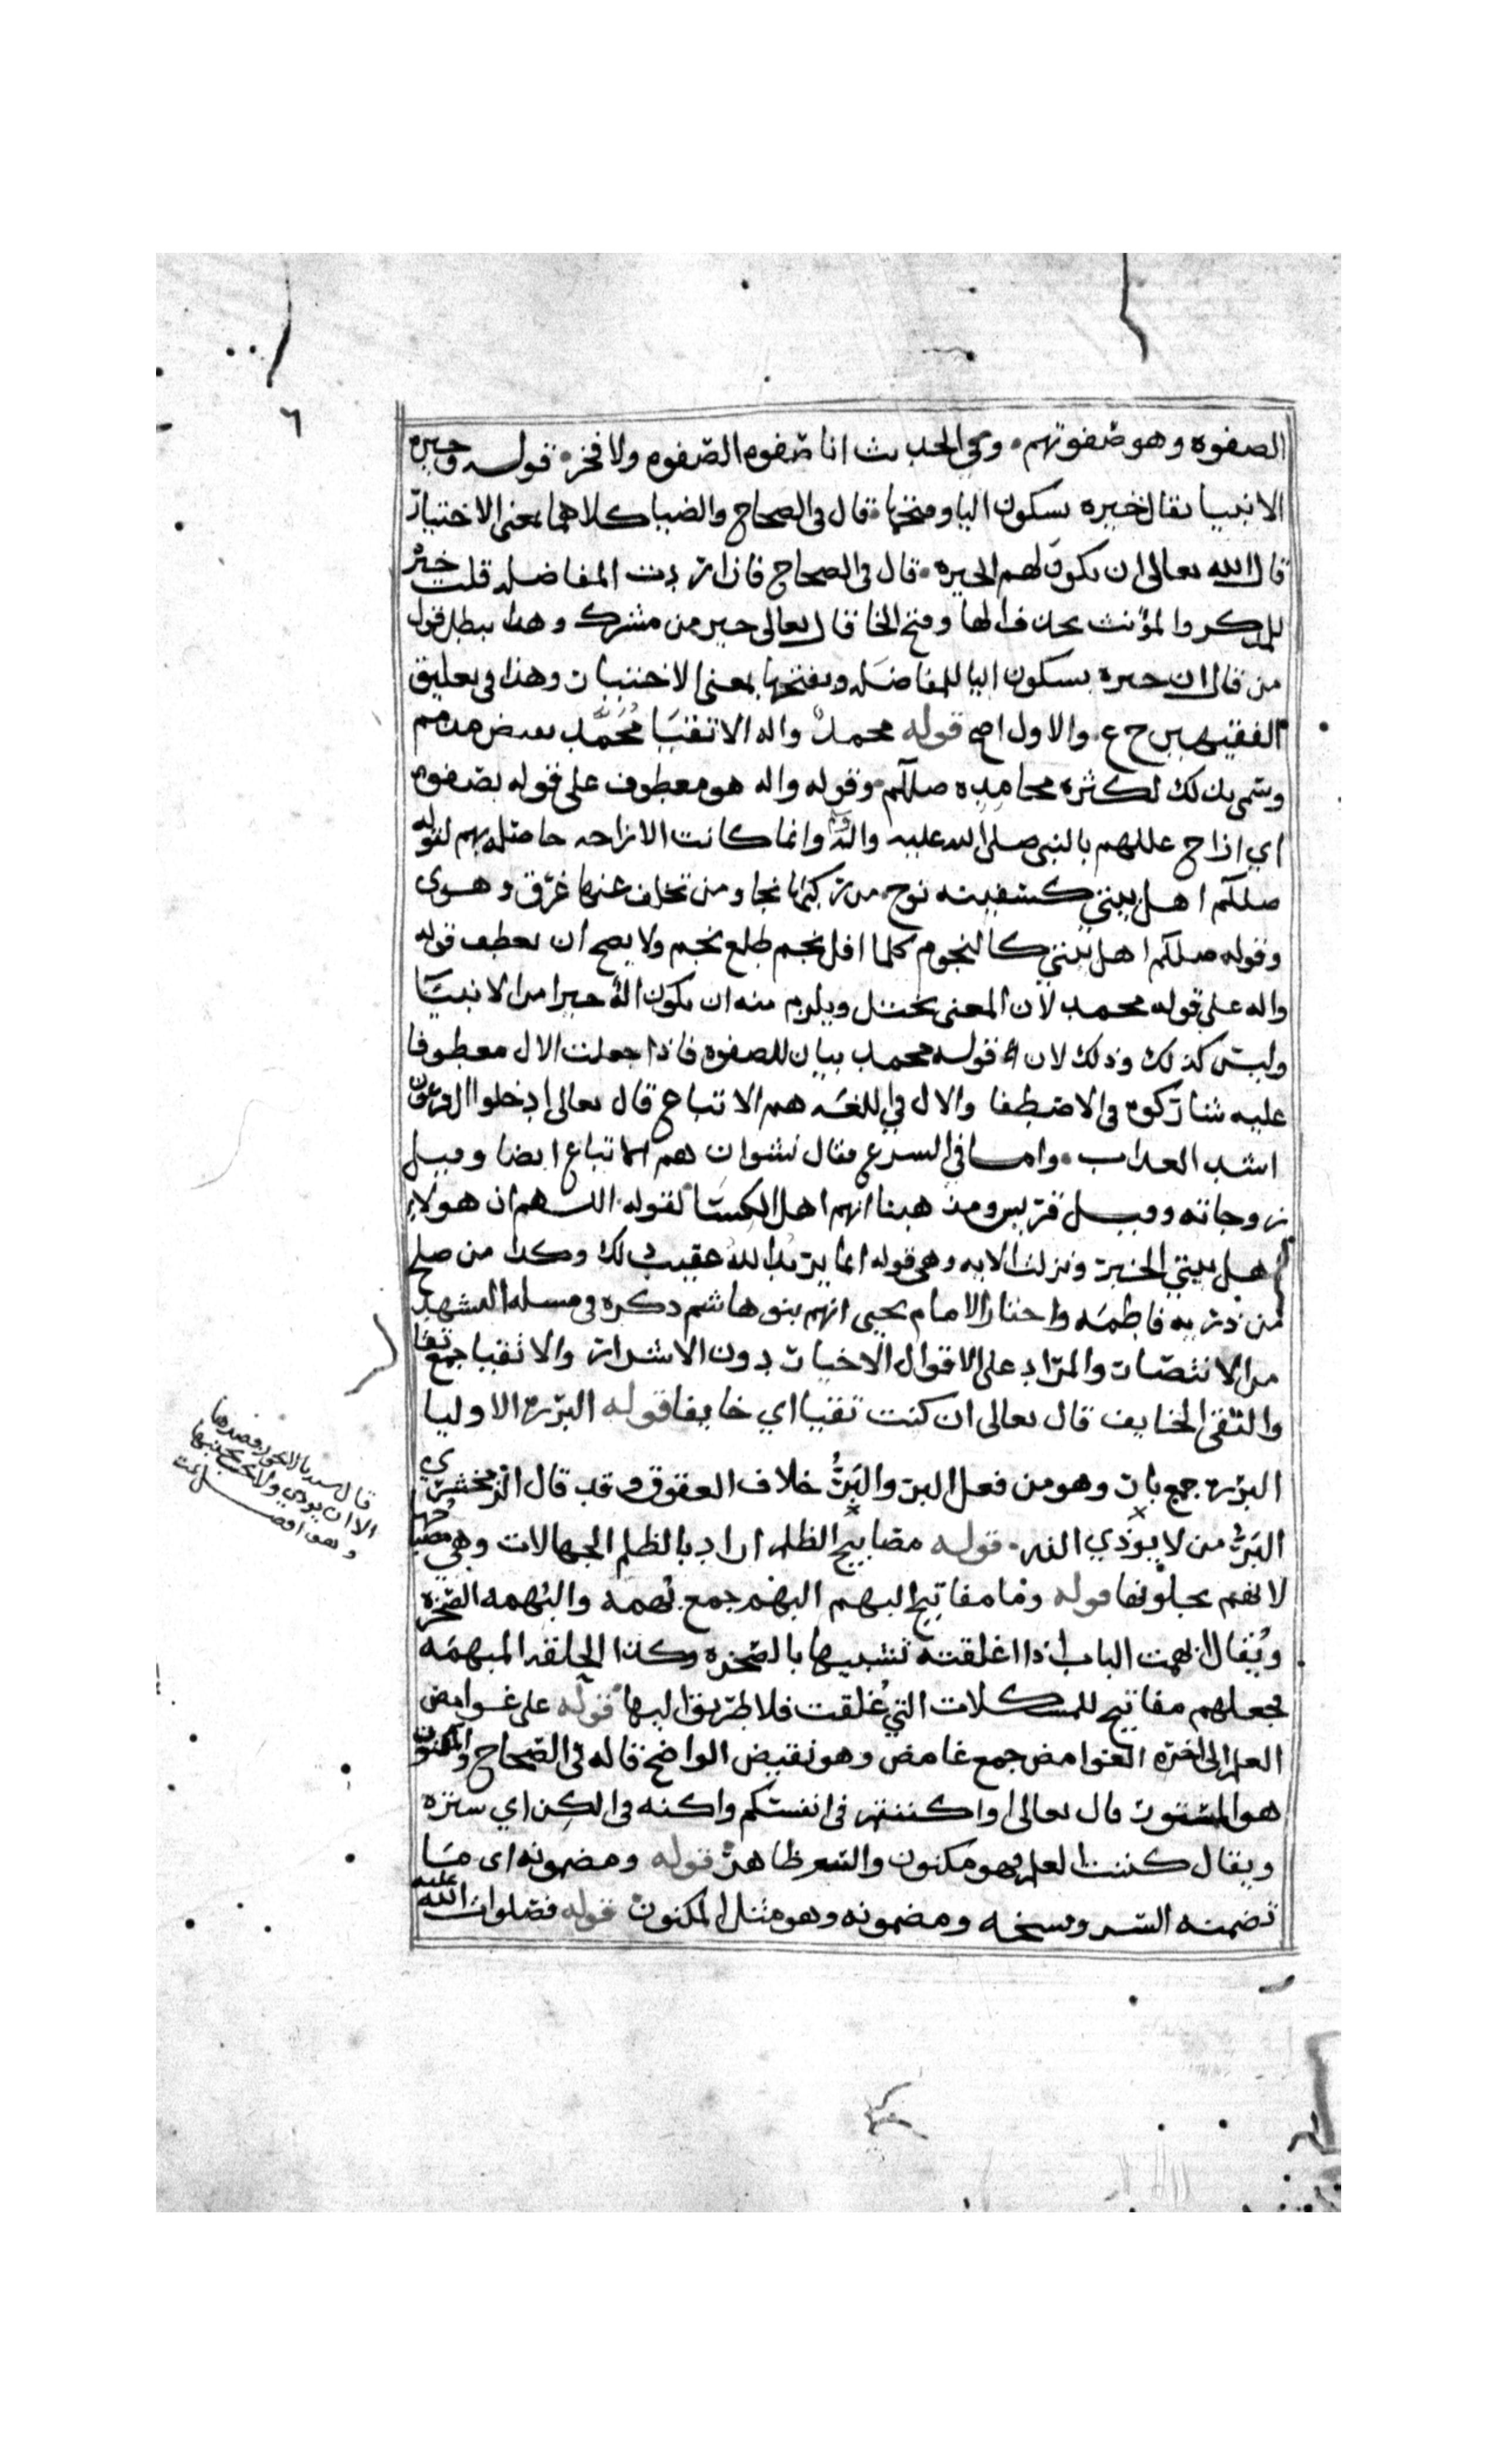 ٦
الصفوه وهو صفوتهم وفي الحديث انا صفوه الصفوه ولا فخر قوله وخيره
الانبيا يقال خيره بسكون اليا وفتحها قال في الصحاح والضيا كلاهما بمعنى الاختيار
قال الله تعالى ان يكون لهم الخيره قال في الصحاح فاذا اردت المفاضله قلت خير
للمذكر والمؤنث بحذف الها وفتح الخا قال تعالى خير من مشرك وهذا يبطل قول
من قال ان خيره بسكون اليا للمفاضله وبفتحها بمعنى الاختيار وهذا في تعليق
الفقيهين ح ع والاول اصح قوله محمد واله الاتقيا محمد نقيض مذمم
وسمي بذلك لكثره محامده صللم وقوله واله هو معطوف على قوله بصفوه
اي ازاح عللهم بالنبي صلى الله عليه واله وانما كانت الازاحه حاصله بهم لقوله
صللم اهل بيتي كسفينه نوح من ركبها نجا ومن تخلف عنها غرق وهوى
وقوله صللم اهل بيتي كالنجوم كلما افل نجم طلع نجم ولا يصح ان يعطف قوله
واله على قوله محمد لان المعنى يختل ويلزم منه ان يكون اله خيرا من الانبيا
وليس كذلك وذلك لان قوله محمد بيان للصفوه فاذا جعلت الال معطوفا
عليه شاركوه في الاصطفا والال في اللغه هم الاتباع قال تعالى ادخلوا ال فرعون
اشد العذاب واما في الشرع فقال نشوان هم الاتباع ايضا وقيل
زوجاته وقيل قريش ومذهبنا انهم اهل الكسا لقوله اللهم ان هولاء
اهل بيتي الخبر ونزلت الايه وهي قوله انما يريد الله عقيب ذلك وكذا من صلح
من ذريه فاطمه واختار الامام يحيى انهم بنو هاشم ذكره في مسله التشهد
من الانتصار والمراد على الاقوال الاخيار دون الاشرار والاتقيا جمع تقي
والتقي الخايف قال تعالى ان كنت تقيا اي خايفا قوله البرره الاوليا
البرره جمع بار وهو من فعل البر والبر خلاف العقوق وقد قال الزمخشري
البر من لا يوذي الذر قوله مصابيح الظلم اراد بالظلم الجهالات وهم مصابيحها
لانهم يجلونها قوله ومفاتيح البهم البهم جمع بهمه والبهمه الصخره
ويقال ابهمت الباب اذا اغلقته تشبيها بالصخره وكذا الحلقه المبهمه
فجعلهم مفاتيح للمشكلات التي غلقت فلا طريق اليها قوله على غوامض
العلم الى اخره الغوامض جمع غامض وهو نقيض الواضح قاله في الصحاح والمكنون
هو المستور قال تعالى او اكننتم في انفسكم واكنه في الكن اي ستره
ويقال كننت العلم فهو مكنون والسر ظاهر قوله ومضمونه اى ما
تضمنه السر ونسخه ومضمونه وهو مثل المكنون قوله فصلوات الله عليه
الا ان يوذي ولا يجب تجنبها